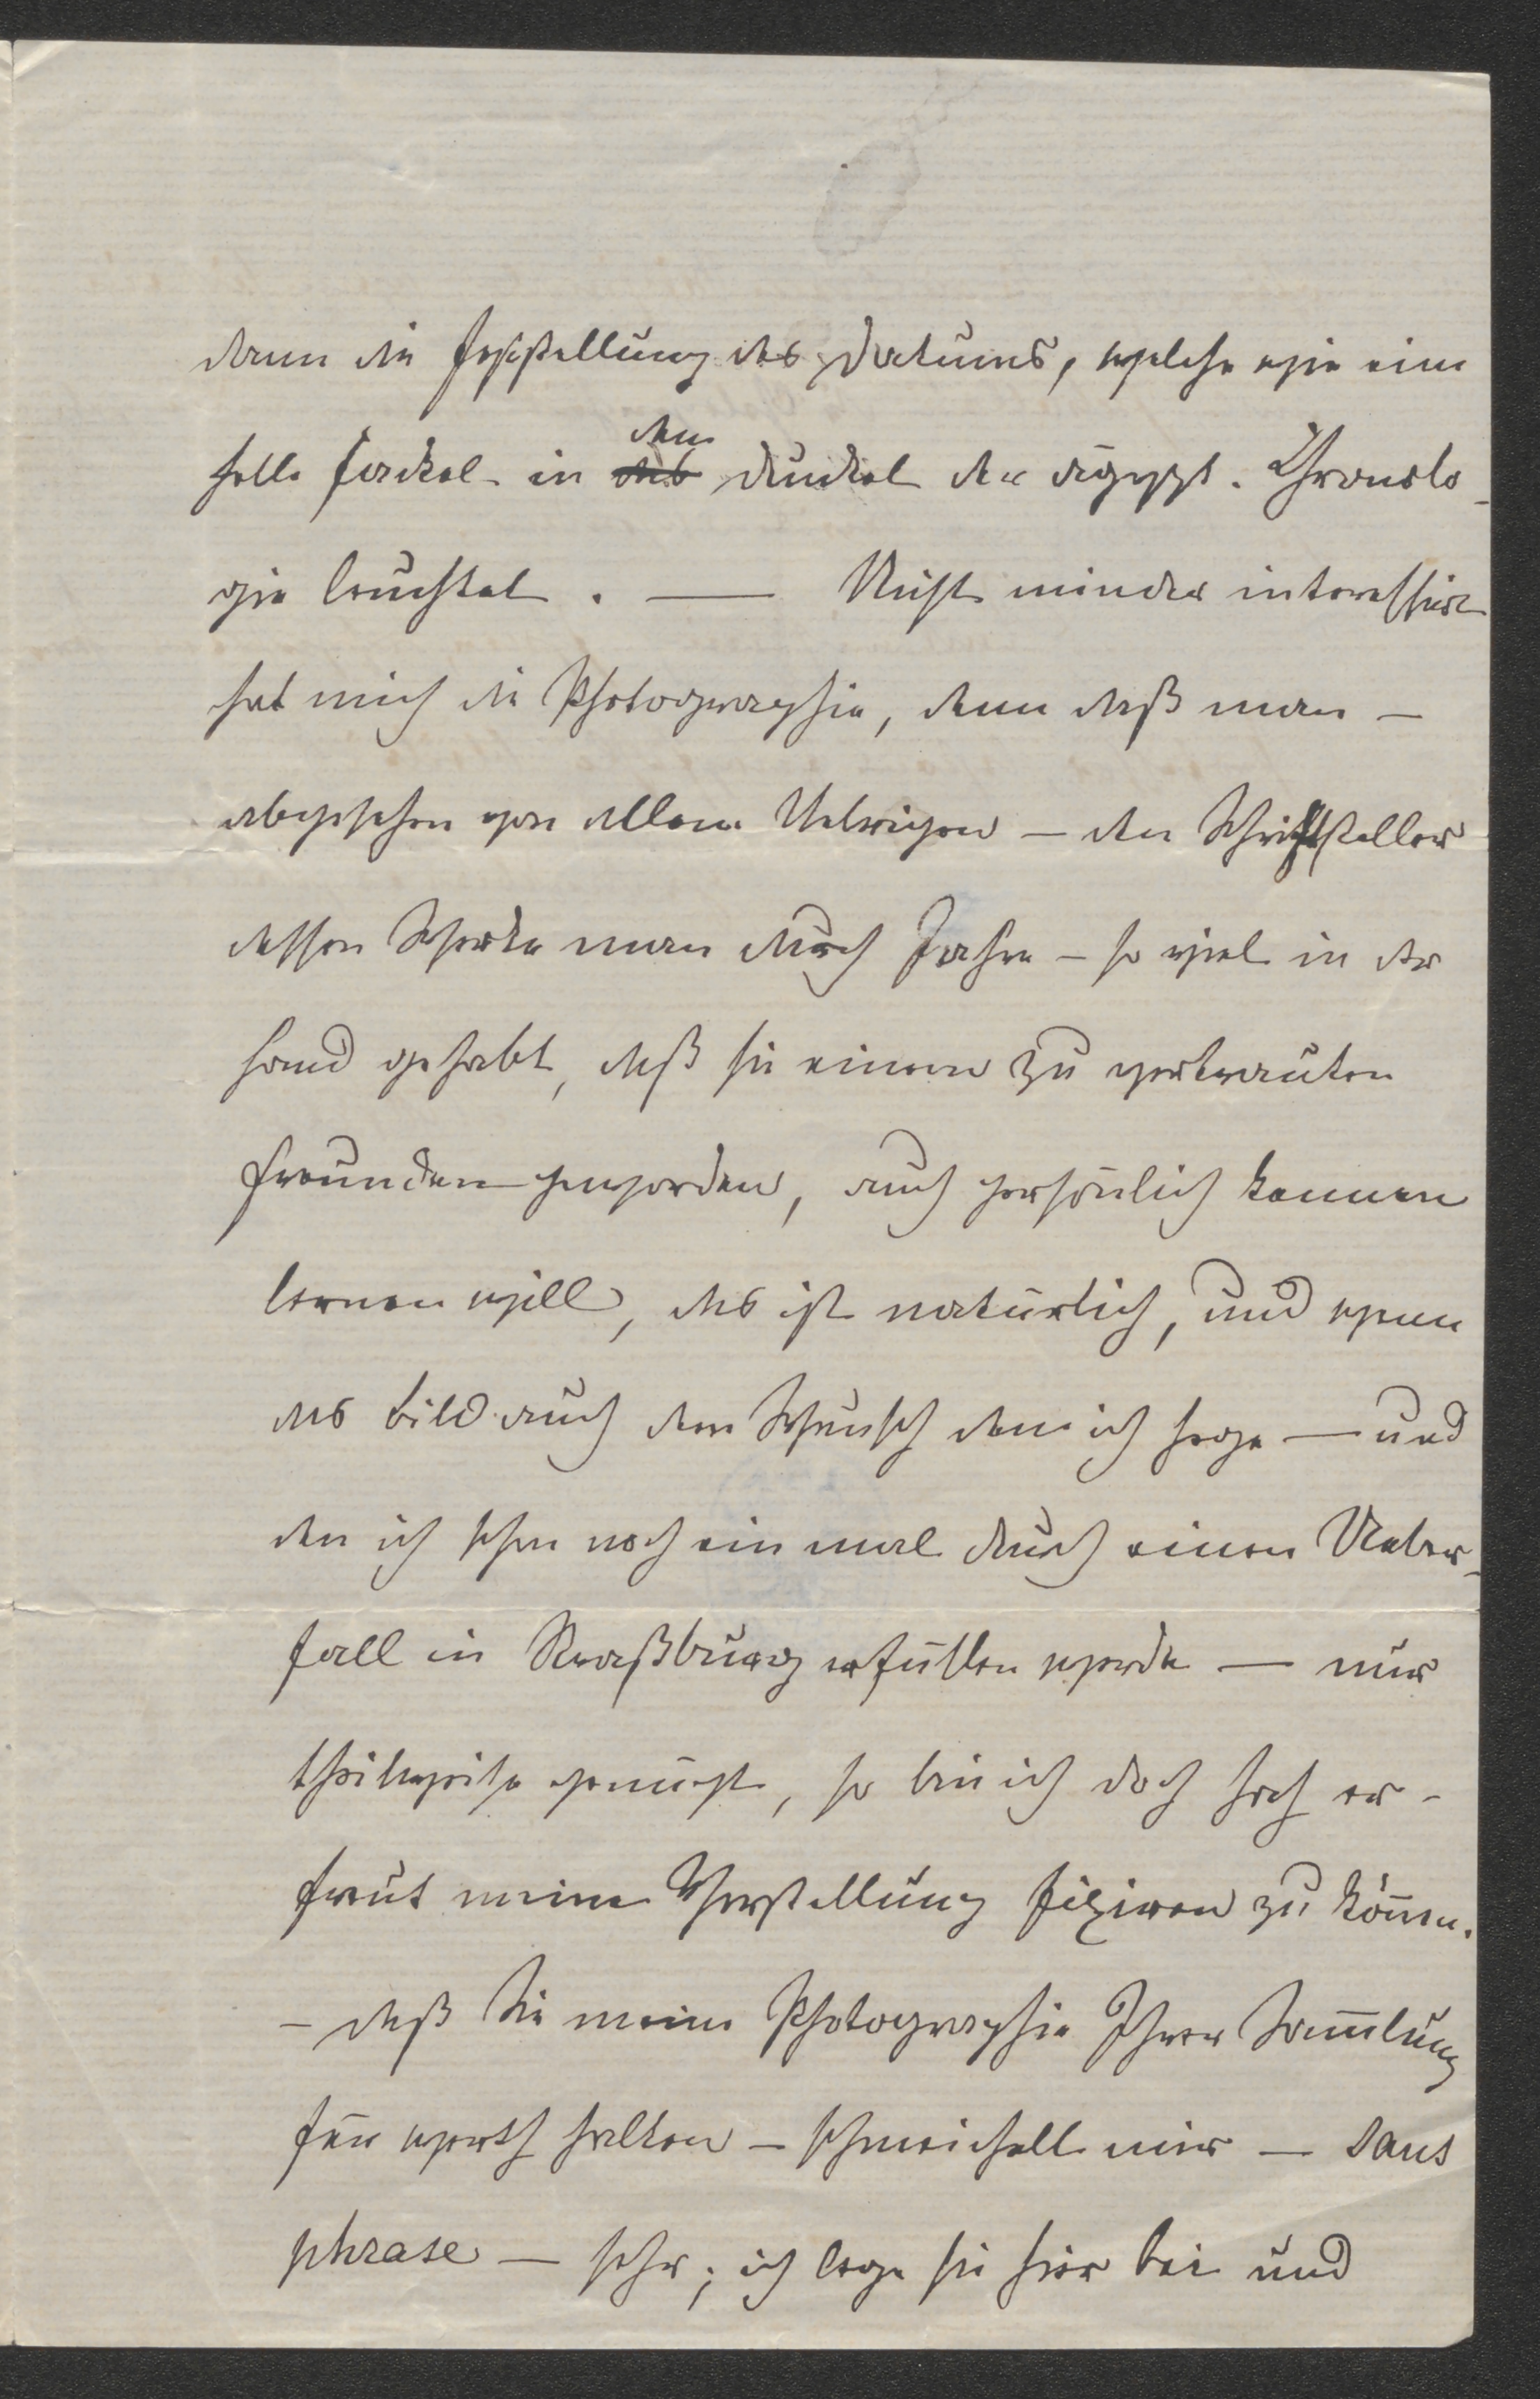 dann die Feststellung des Datums, welche wie eine
helle Fackel in das dem Dunkel der ägypt. Chronolo-
gie leuchtet. — Nicht minder interessirt
hat mich die Photographie, denn daß man —
abgesehen von allem Uebrigen — den Schriftsteller
dessen Werke man durch Jahre — so viel in der
Hand gehabt, daß sie einem zu vertrauten
Freunden geworden, auch persönlich kennen
lernen will, das ist natürlich, und wenn
das Bild auch den Wunsch den ich hege — und
den ich schon noch ein mal durch einen Ueber-
fall in Straßburg erfüllen werde — nur
theilweise genügt, so bin ich doch hoch er-
freut meine Vorstellung fixiren zu kön̅en.
— daß Sie meine Photographie Ihrer Sam̅lung
für werth halten — schmeichelt mir — sans
phrase — sehr; ich lege sie hier bei und